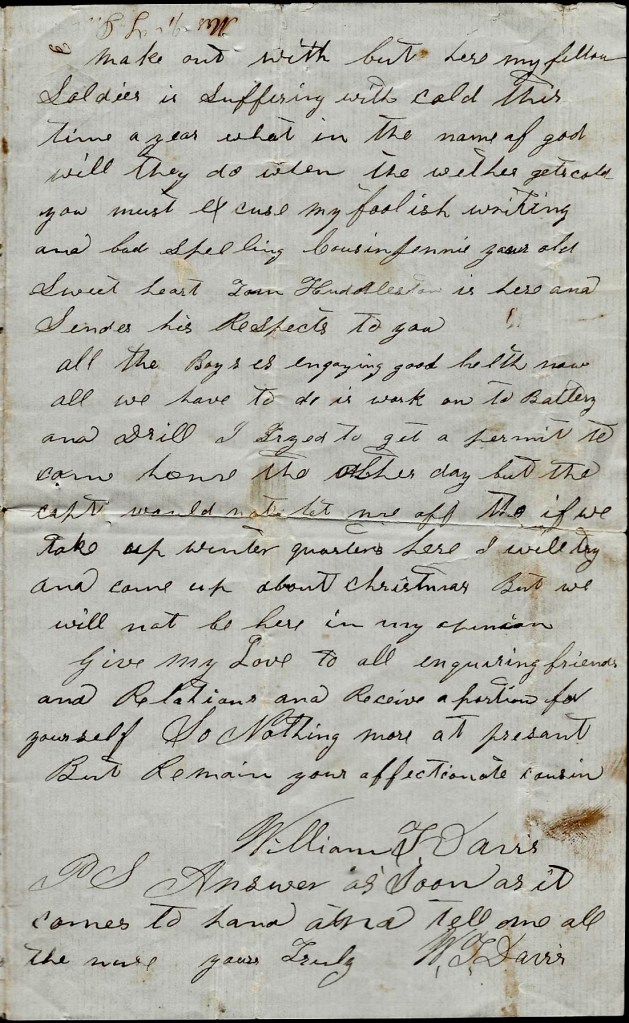 make out with but here my fellow
Soldier is Suffering with cold this
time a year what in the name of god
will they do when the wether gets cold
you must excuse my foolish writing
and bad Spelling Cousin Jennie your old
Sweet heart Tom Huddleston is here and
Sendes his Respects to you
all the Boys is engoying good helth now
all we have to do is work on to Battery
and Drill I Tryed to get a permit to
come home the other day but the
capt would not let me off tho if we
Take up winter quarters here I will try
and come up about Christmas But we
will not be here in my opinion
Give my Love to all enquiring friends
and Relations and Receive a portion for
yourself So Nothing more at presant
But Remain your affectionate cousin
William F Davis
PS Answer as Soon as it
comes to hand and tell me all
the nuse yours Truly W. F. Davis